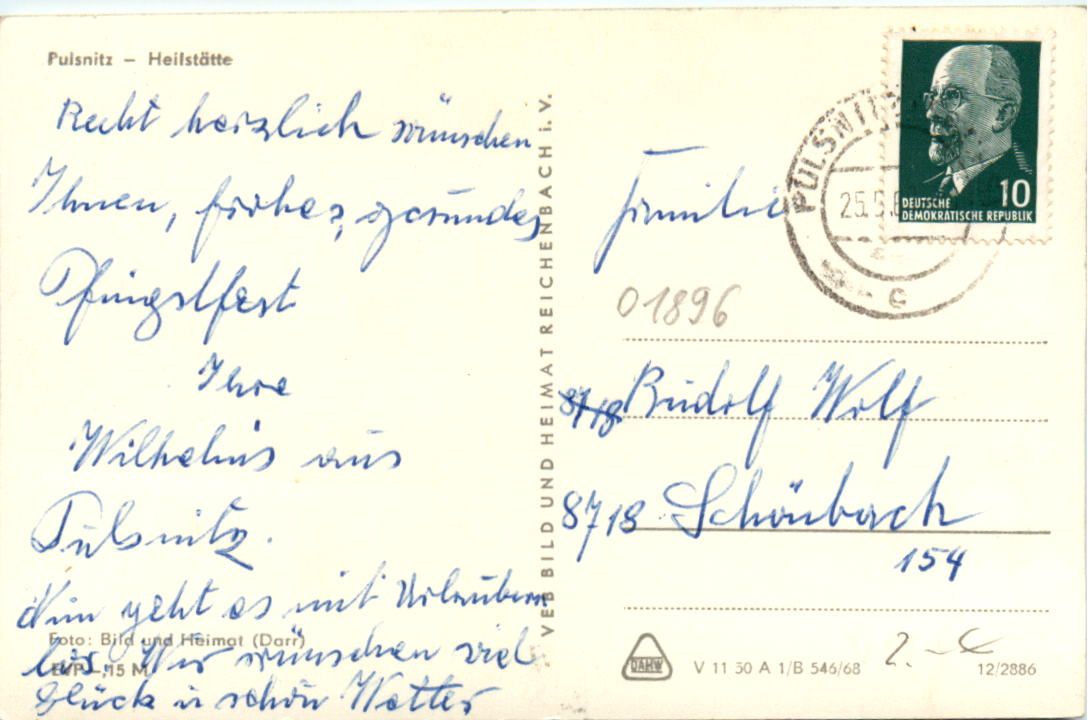 Pulsnitz – Heilstätte
Recht herzlich wünschen
Ihnen, frohes, gesundes
Pfingstfest
Ihre
Wilhelms aus
Pulsnitz.
Nun geht es mit Urlaubern
los. Wir wünschen viel
Glück u schön Wetter
Foto: Bild und Heimat (Darr)
EVP –,15 M
VEB BILD UND HEIMAT REICHENBACH i. V.
DEUTSCHE
DEMOKRATISCHE REPUBLIK
10
PULSNITZ
25.5.
c
Familie
01896
8718 Rudolf Wolf
8718 Schönbach
154
2.-
DAHW
V 11 50 A 1/B 546/68
12/2886